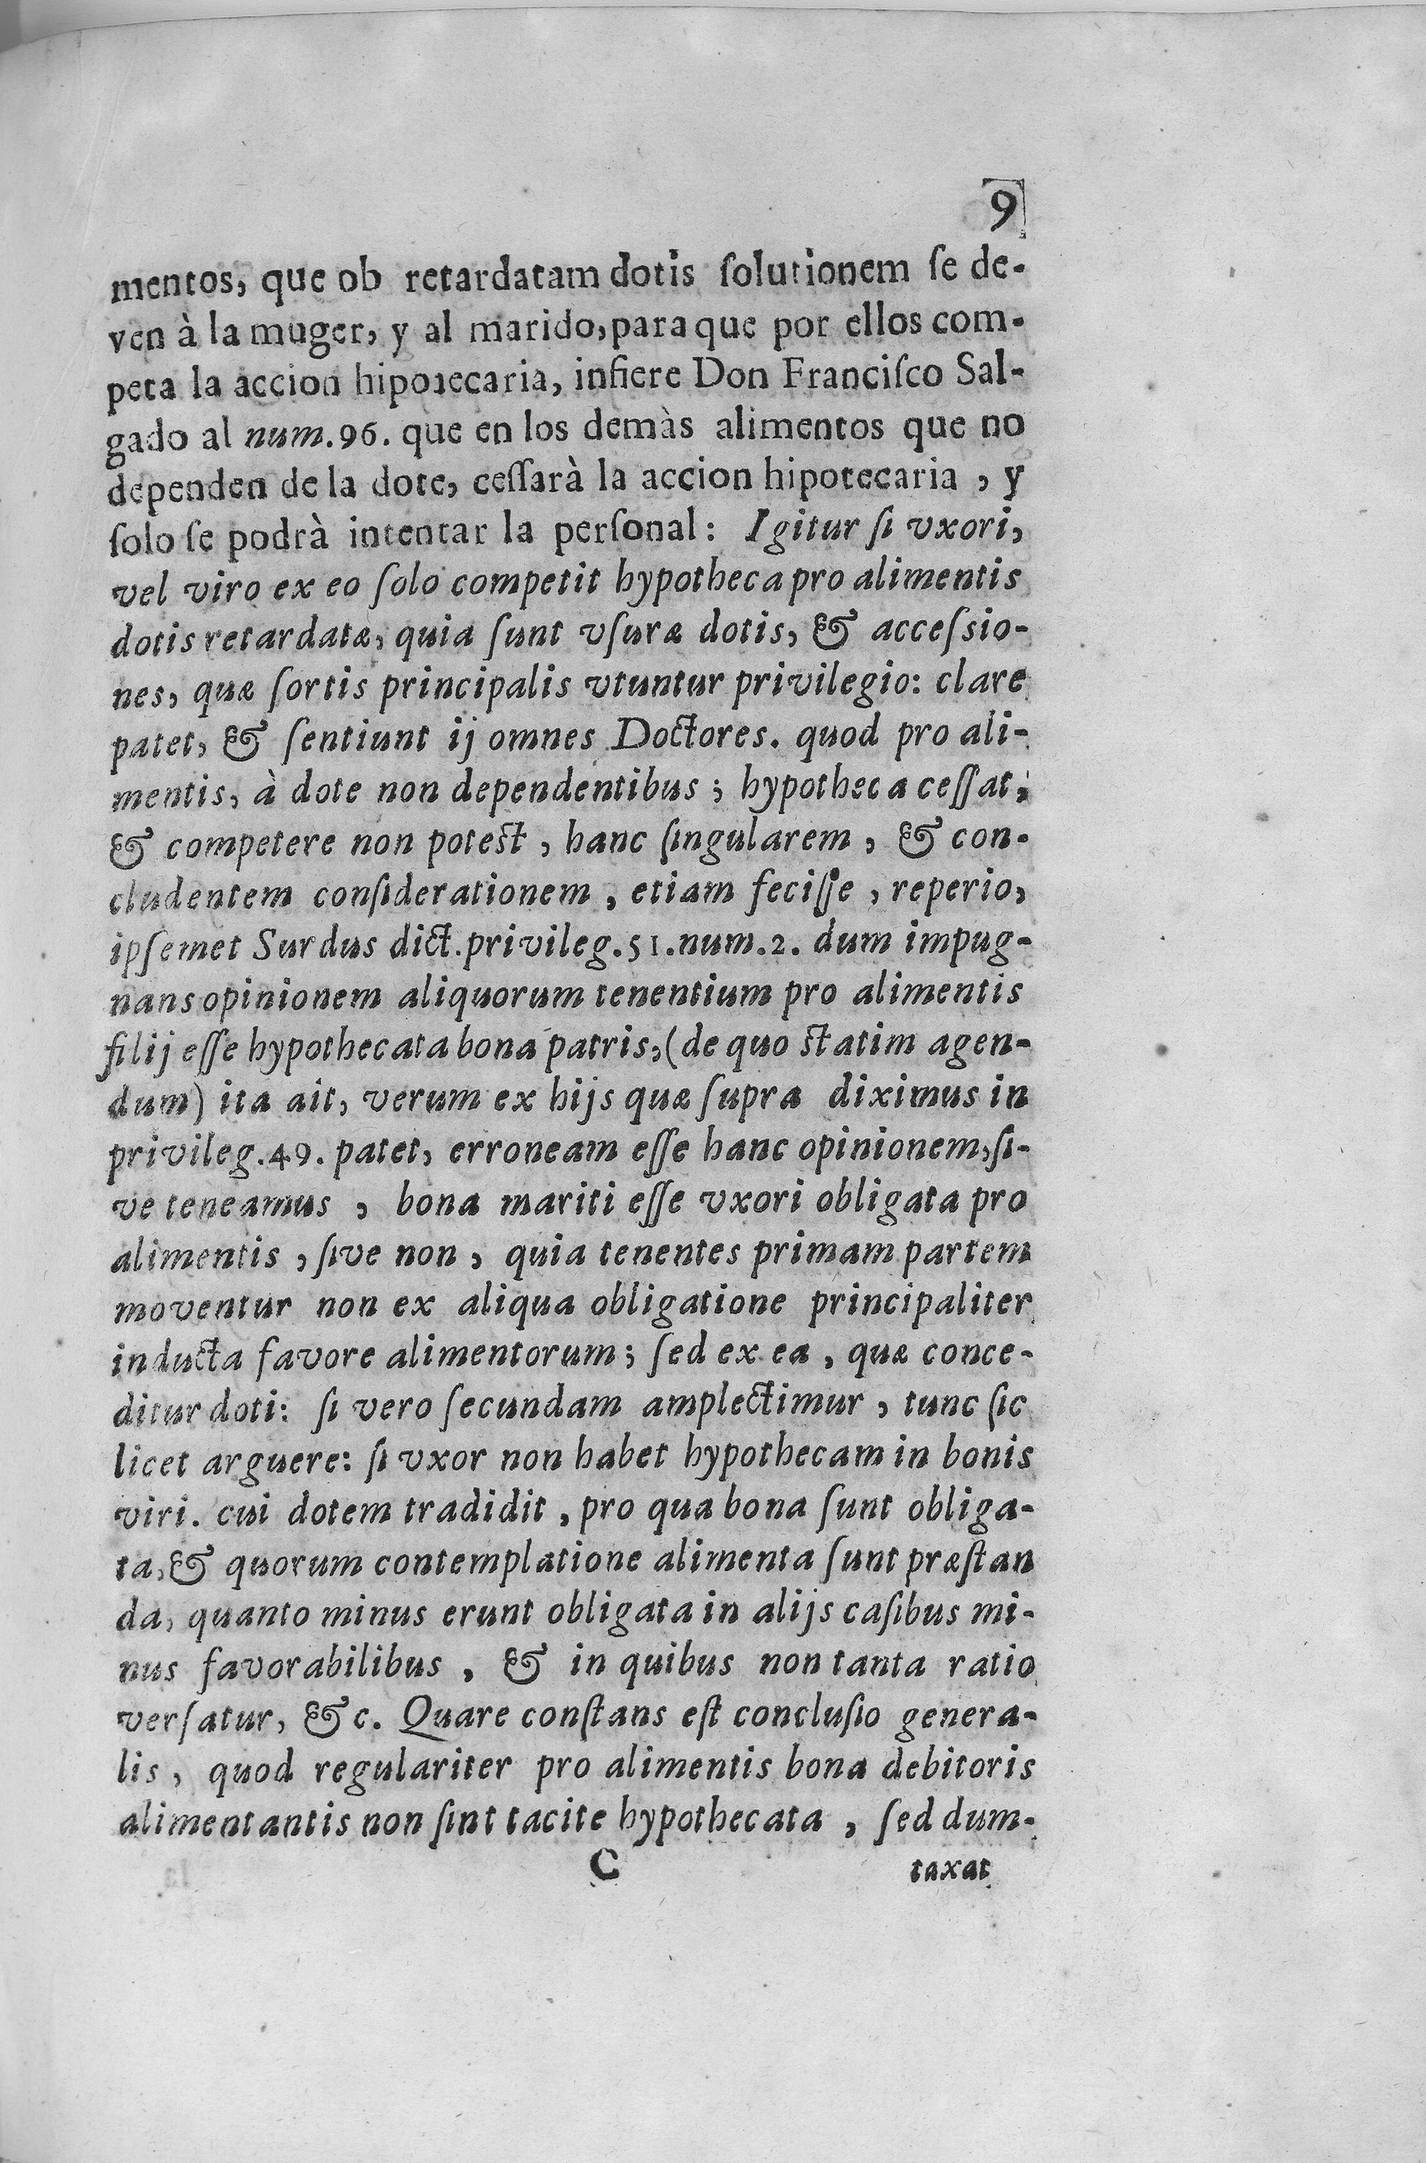 9
mentos, que ob retardatam dotis ſolutionem ſe de-
ven à la muger, y al marido, para que por ellos com-
peta la accion hipotecaria, infiere Don Franciſco Sal-
gado al num. 96. que en los demàs alimentos que no
dependen de la dote, ceſſarà la accion hipotecaria, y
ſolo ſe podrà intentar la perſonal: Igitur ſi vxori,
vel viro ex eo ſolo competit hypotheca pro alimentis
dotis retardatæ, quia ſunt vſuræ dotis, & acceſsio-
nes, quæ ſortis principalis vtuntur privilegio: clare
patet, & ſentiunt ij omnes Doctores. quod pro ali-
mentis, à dote non dependentibus; hypotheca ceſſat;
& competere non poteſt, hanc ſingularem, & con-
cludentem conſiderationem, etiam feciſſe, reperio,
ipſemet Surdus dict. privileg. 51. num. 2. dum impug-
nans opinionem aliquorum tenentium pro alimentis
filij eſſe hypothecata bona patris, (de quo ſtatim agen-
dum) ita ait, verum ex hijs quæ ſupra diximus in
privileg. 49. patet, erroneam eſſe hanc opinionem, ſi-
ve teneamus, bona mariti eſſe vxori obligata pro
alimentis, ſive non, quia tenentes primam partem
moventur non ex aliqua obligatione principaliter
inducta favore alimentorum; ſed ex ea, quæ conce-
ditur doti: ſi vero ſecundam amplectimur, tunc ſic
licet arguere: ſi vxor non habet hypothecam in bonis
viri. cui dotem tradidit, pro qua bona ſunt obliga-
ta, & quorum contemplatione alimenta ſunt præſtan
da, quanto minus erunt obligata in alijs caſibus mi-
nus favorabilibus, & in quibus non tanta ratio
verſatur, &c. Quare conſtans eſt concluſio genera-
lis, quod regulariter pro alimentis bona debitoris
alimentantis non ſint tacite hypothecata, ſed dum-
C taxat